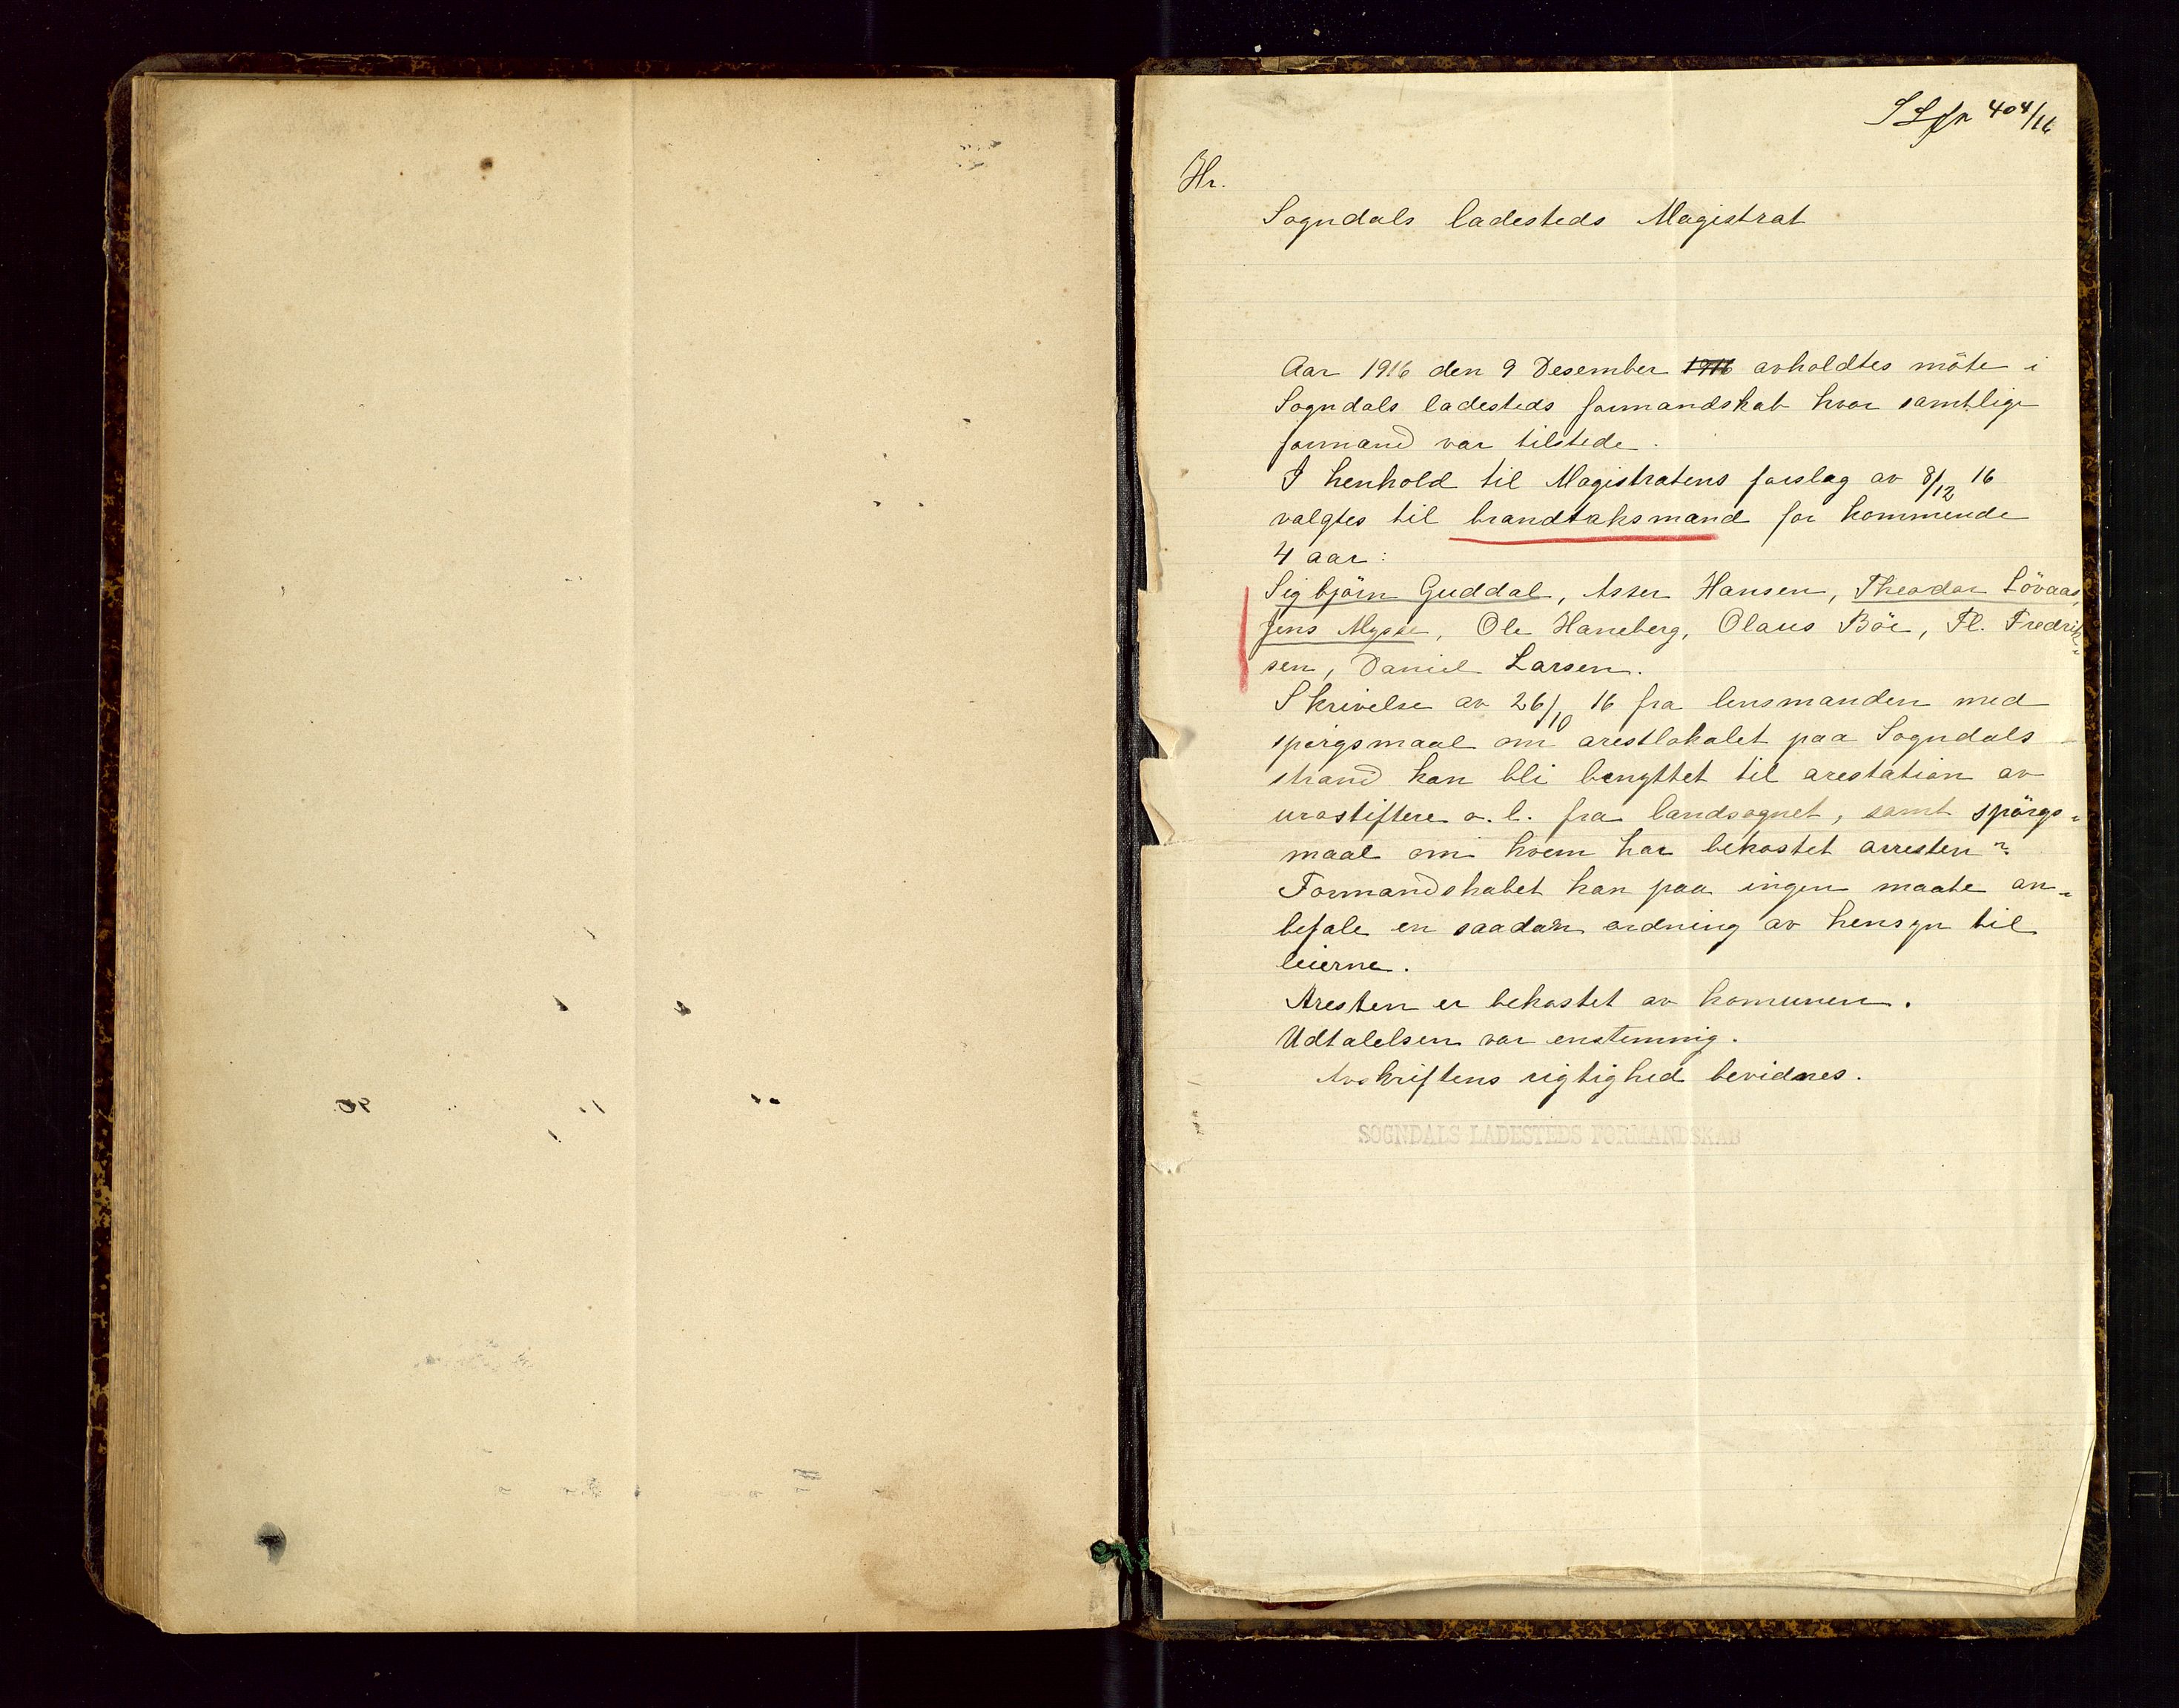 S L jn 404/16
Hr.
Sogndals ladesteds Magistrat
Aar 1916 den 9 Desember 1916 avholdtes möte i
Sogndals ladesteds formandskab hvor samtlige
formænd var tilstede.
I henhold til Magistratens forslag av 8/12 16
valgtes til brandtaksmænd for kommende
4 aar:
Sigbjörn Guddal, Asser Hansen, Theodor Lövaas,
Jens Mysse, Ole Haneberg, Olaus Böe, Fl. Fredrik-
sen, Daniel Larsen.
Skrivelse av 26/10 16 fra lensmanden med
spørgsmaal om arestlokalet paa Sogndals
strand kan bli benyttet til arestation av
urostiftere o. l. fra landsognet, samt spörgs-
maal om hvem har bekostet arresten?
Formandskabet kan paa ingen maate an-
befale en saadan ordning av hensyn til
leierne.
Aresten er bekostet av komunen.
Udtalelsen var enstemmig.
Avskriftens rigtighed bevidnes.
SOGNDALS LADESTEDS FORMANDSKAB
90